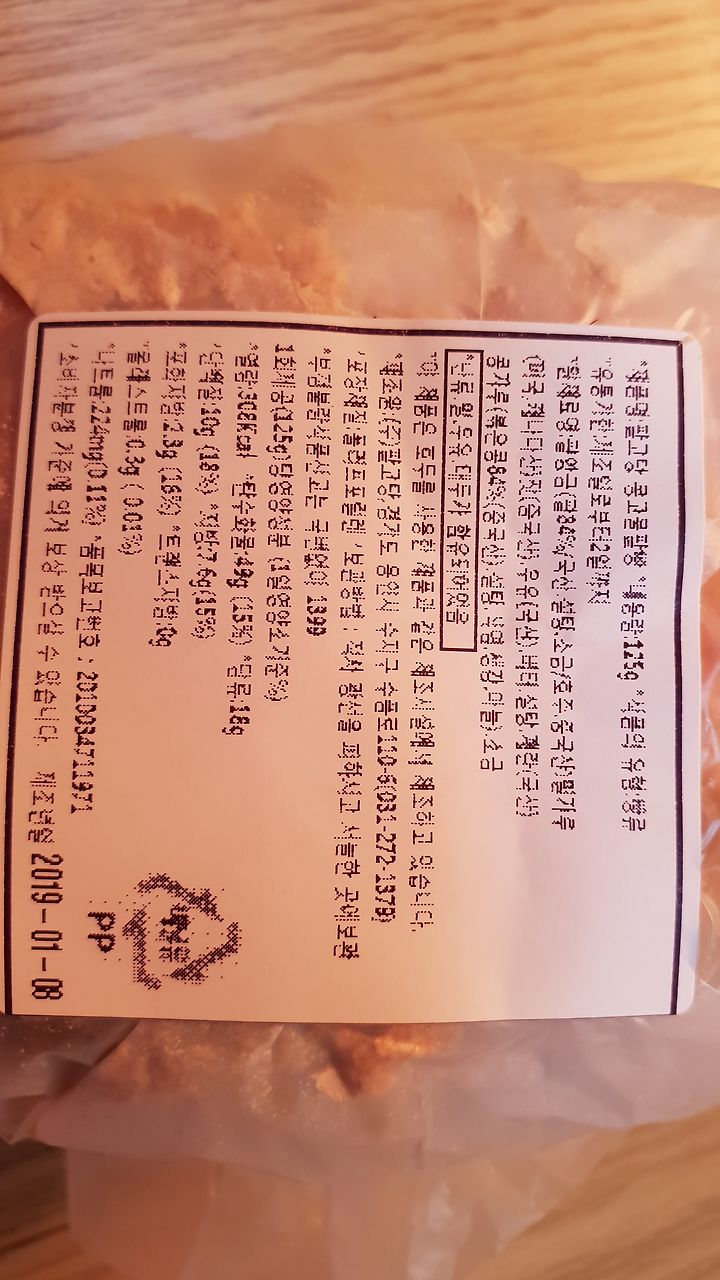 *제품명:팥고당 콩고물팥빵 *내용량:125g *식품의 유형:빵류
*유통기한:제조일로부터2일까지
*원재료명:팥앙금(팥84%,국산,설탕,소금)/호두:중국산)밀가루
(미국,캐나다산)잣(중국산),우유(국산),버터,설탕,계란(국산)
콩가루(볶은콩84%(중국산),설탕, 소금
*난류,밀,우유,대두가 함유되어있음
*이 제품은 호두를 사용한 제품과 같은 제조시설에서 제조하고 있습니다.
*제조원:(주)팥고당/경기도 용인시 수지구 수풍로 110-6(031-272-1379)
*포장재질:폴리프로필렌 *보관방법 : 직사 광선을 피하시고 서늘한 곳에 보관
*부정불량식품신고는 국번없이 1399
1회제공(125g당)영양성분 (1일영양소기준%)
*열량:308Kcal *탄수화물:49g (15%) *당류:18g
*단백질:10g (18%) *지방:7.6g(15%)
*포화지방:2.3g (16%) *트랜스지방:0g
*콜레스트롤:0.3g ( 0.01%)
*나트륨:224mg(0.11%) *품목보고번호 : 2010034711971
*소비자분쟁 기준에 의거 보상 받으실 수 있습니다. 제조년월 2019-01-08
비닐류
PP